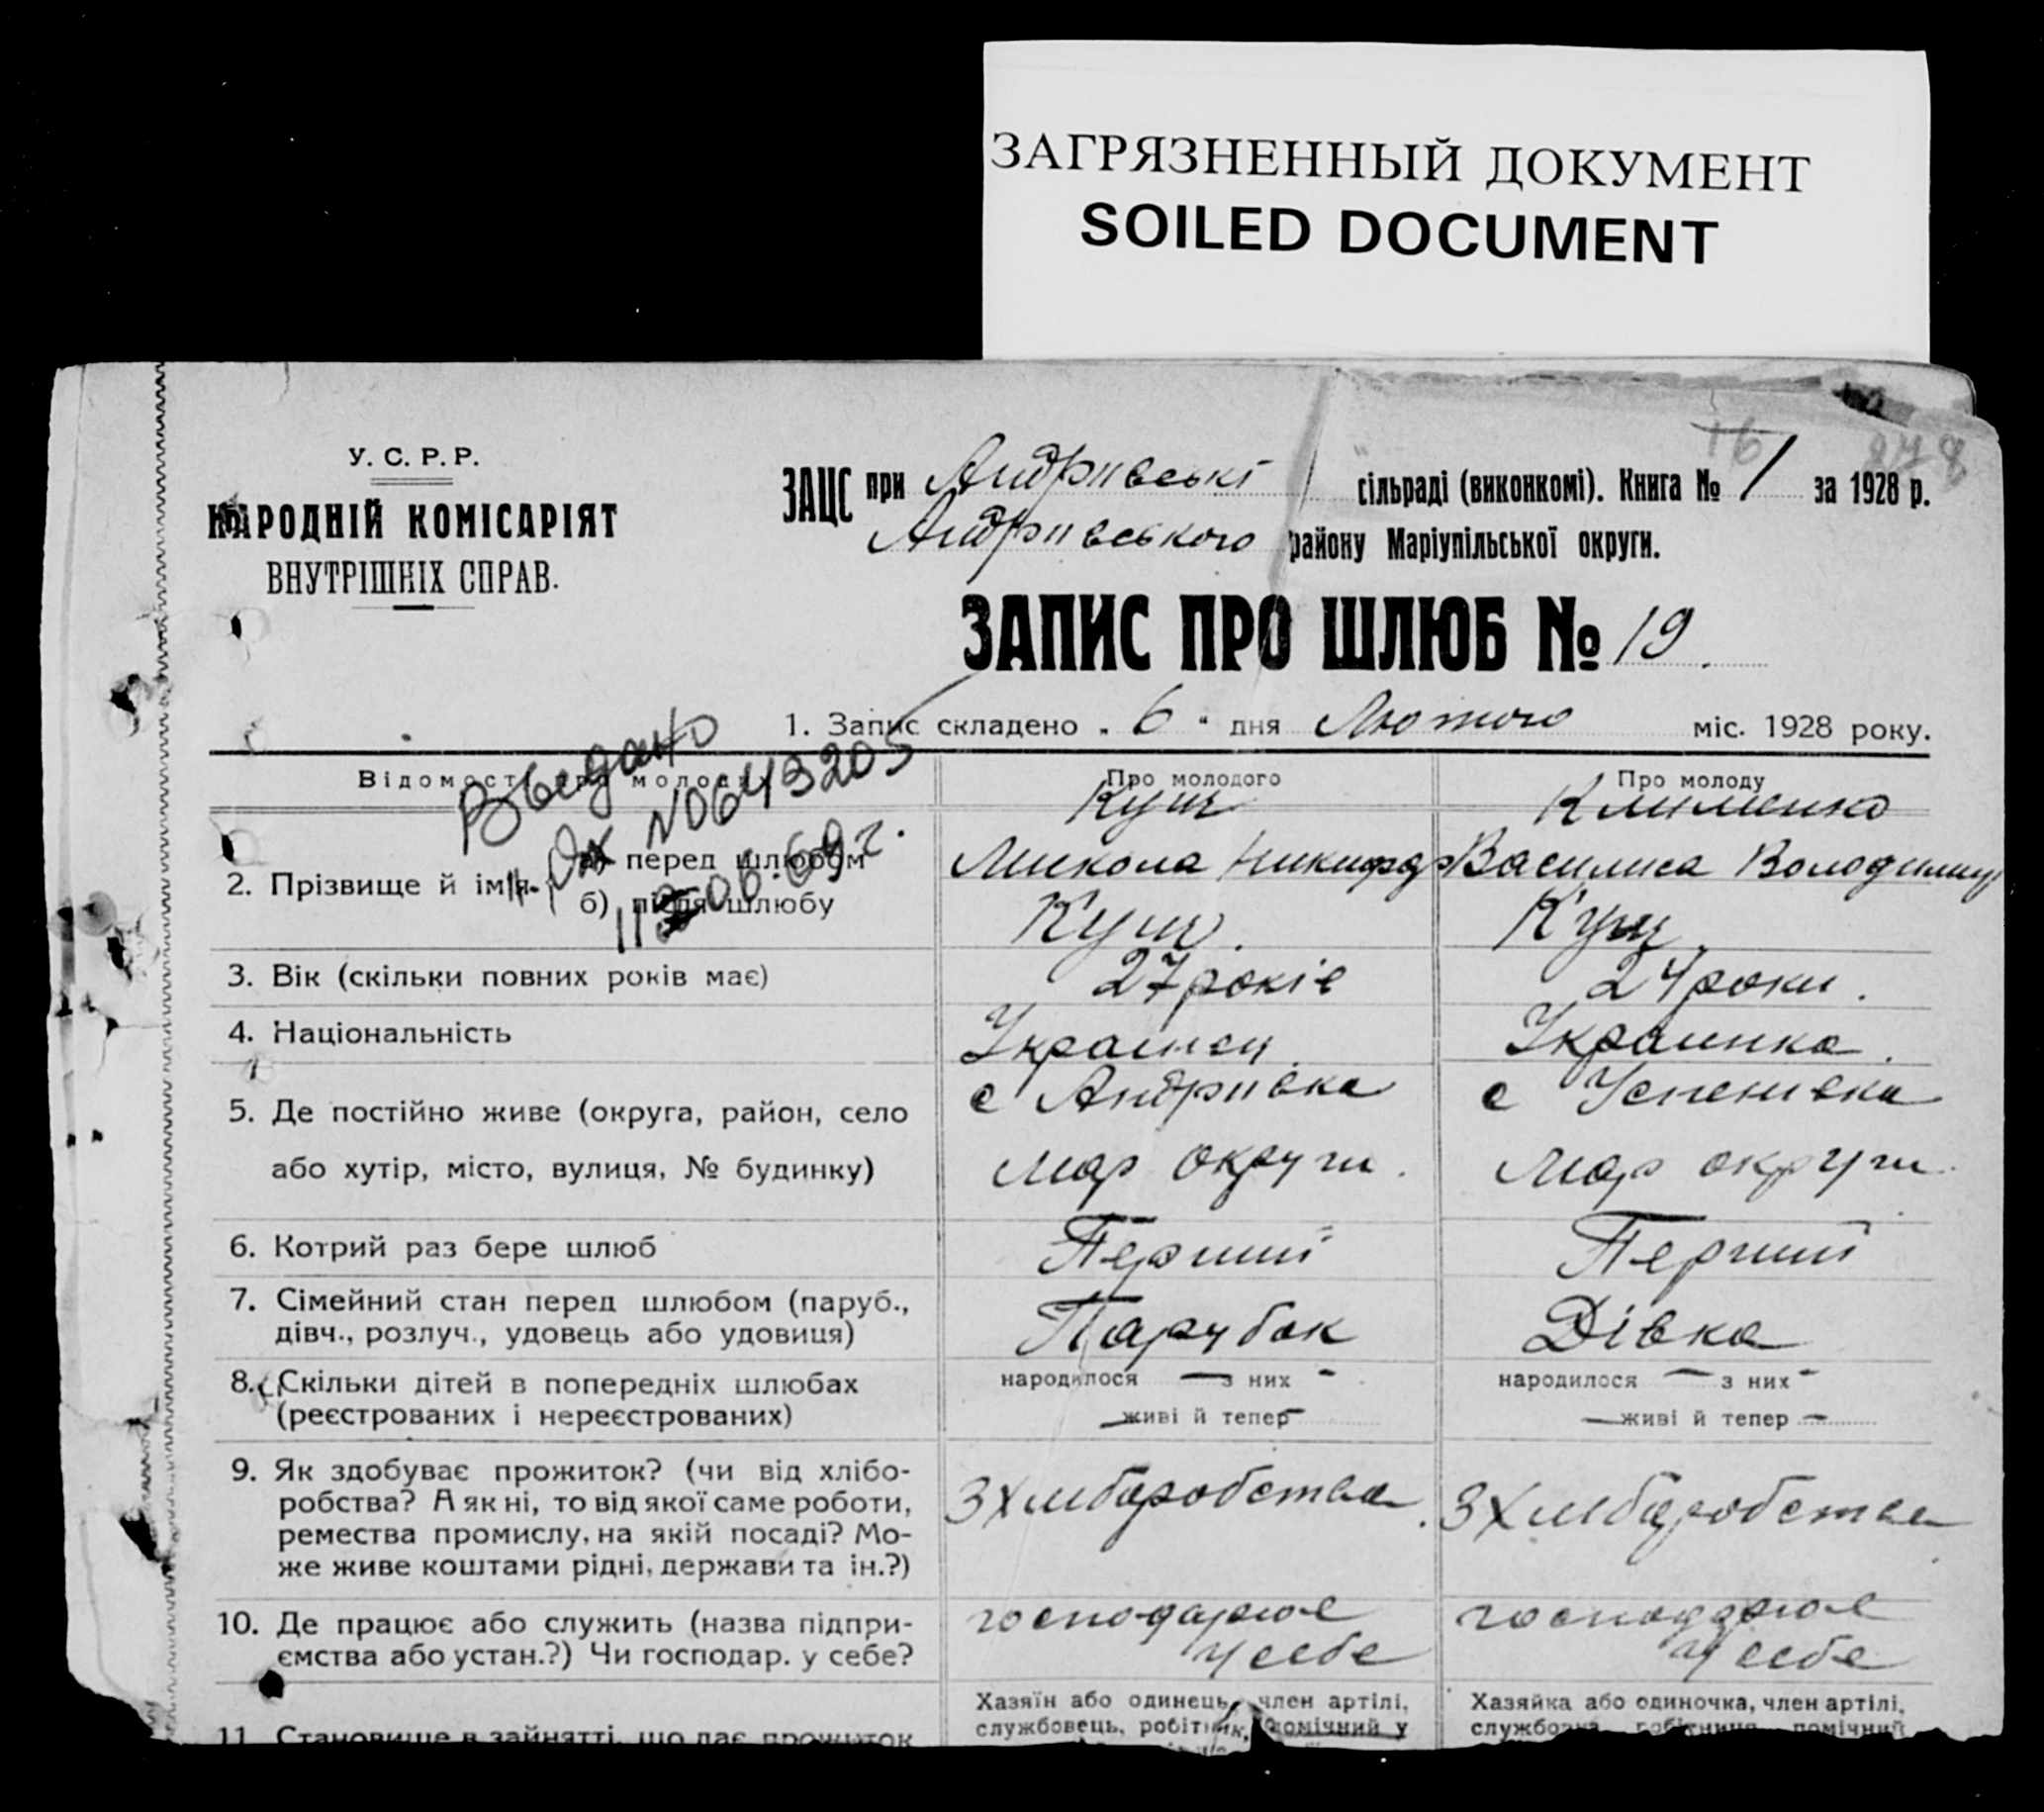 ЗАГРЯЗНЕННЫЙ ДОКУМЕНТ
SOILED DOCUMENT
У. С. Р. Р.
НАРОДНІЙ КОМІСАРІЯТ
ВНУТРІШНІХ СПРАВ.
16
ЗАЦС при Андріівські сільраді (виконкомі). Книга № 1 за 1928 р.
Андріівського району Маріупільської округи.
ЗАПИС ПРО ШЛЮБ № 19.
1. Запис складено „ 6 “ дня Лютого міс. 1928 року.
Відомості про молодих
Про молодого
Про молоду
№ 0643205
06.69 г.
Кущ
Клименко
2. Прізвище й ім'я
а) перед шлюбом
Микола Никифор
Василиса Володимир
б) після шлюбу
Кущ.
Кущ.
3. Вік (скільки повних років має)
27 років
24 роки.
4. Національність
Украинец.
Украинка.
5. Де постійно живе (округа, район, село
або хутір, місто, вулиця, № будинку)
с Андріівка
мар округи.
с Успенівка
мар округи.
6. Котрий раз бере шлюб
Перший
Перший
7. Сімейний стан перед шлюбом (паруб.,
дівч., розлуч., удовець або удовиця)
Парубок
Дівка
8. Скільки дітей в попередніх шлюбах
(реєстрованих і нереєстрованих)
народилося — з них -
— живі й тепер -
народилося — з них -
— живі й тепер —
9. Як здобуває прожиток? (чи від хлібо-
робства? А як ні, то від якої саме роботи,
ремества промислу, на якій посаді? Мо-
же живе коштами рідні, держави та ін.?)
З хлиборобства.
З хлиборобства
10. Де працює або служить (назва підпри-
ємства або устан.?) Чи господар. у себе?
господарює
у себе
господарює
у себе
11. Становище в зайнятті, що дає прожиток
Хазяїн або одинець, член артілі,
службовець, робітник, помічний у
Хазяйка або одиночка, член артілі,
службовка робітниця помічний